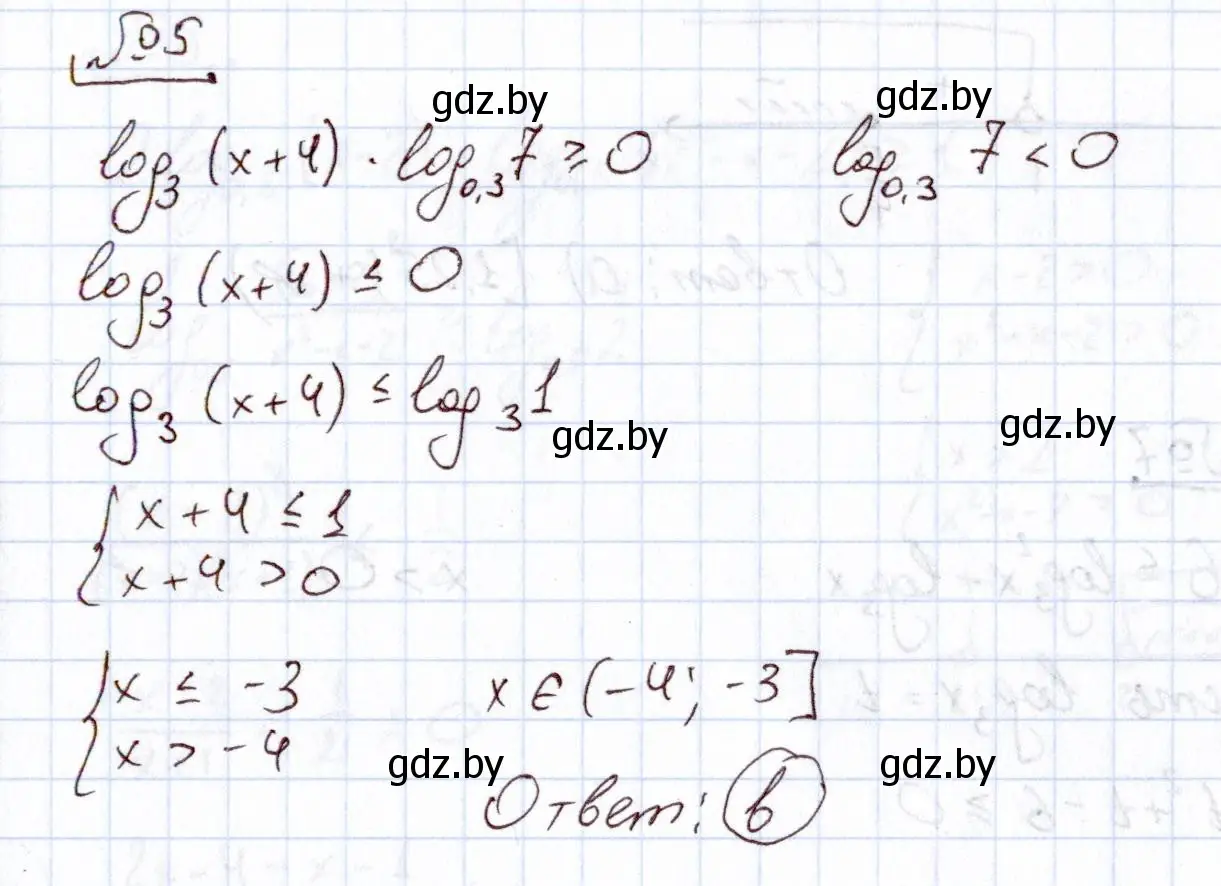 №95
gdz.by gdz.by
log₃(x+4) · log₀,₃7 ≥ 0 log₀,₃ 7 < 0
log₃(x+4) ≤ 0
log₃(x+4) ≤ log₃1
gdz.by gdz.by
{ x + 4 ≤ 1
x + 4 > 0
{ x ≤ -3 x ∈ (-4; -3]
x > -4
gdz.by gdz.by
Ответ: в